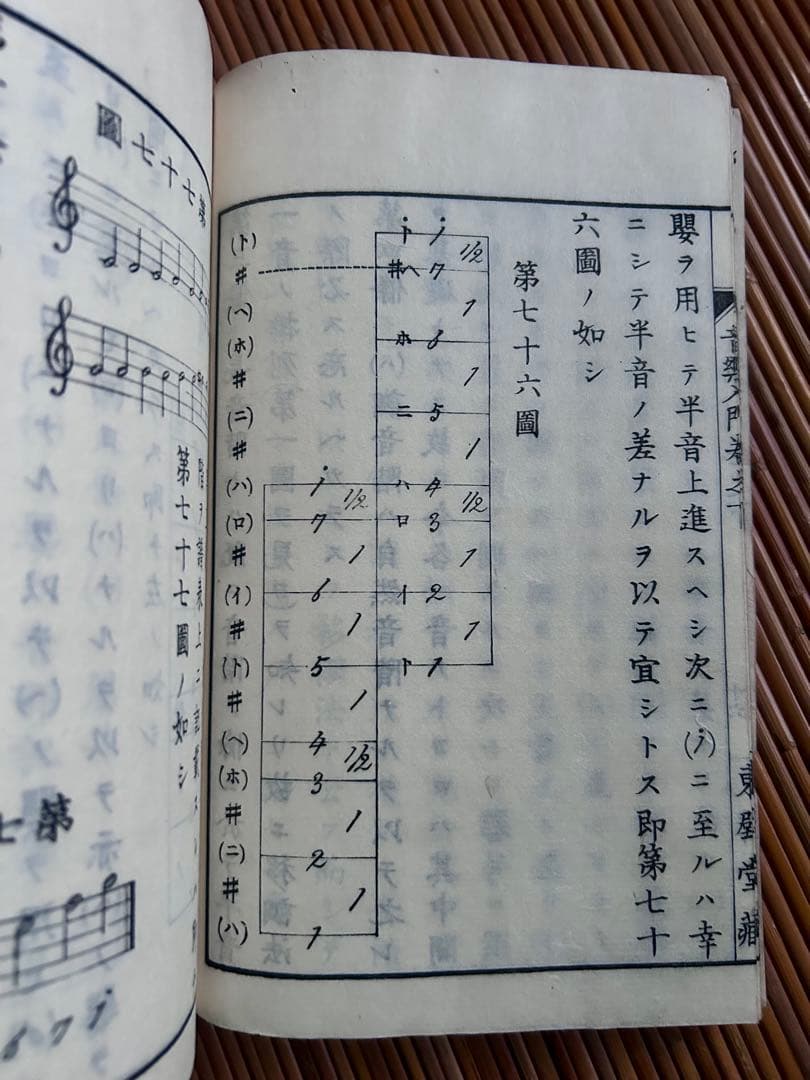 音樂入門卷之下
東壁堂藏
嬰ヲ用ヒテ半音上進スヘシ次ニ(i)ニ至ルハ幸
ニシテ半音ノ差ナルヲ以テ宜シトス即第七十
六圖ノ如シ
第七十六圖
ト i
1/2
♯ヘ 7
1
ホ 6
1
ニ 5
1
ハ 4
1/2
ロ 3
1
イ 2
1
ト 1
i
1/2
7
1
6
1
5
1
4
1/2
3
1
2
1
1
(ト)
♯
(ヘ)
(ホ)
♯
(ニ)
♯
(ハ)
(ロ)
♯
(イ)
♯
(ト)
♯
(ヘ)
(ホ)
♯
(ニ)
♯
(ハ)
第七十七圖
階ヲ譜表上ニ
第七十七圖ノ如シ
第七
6 7 i